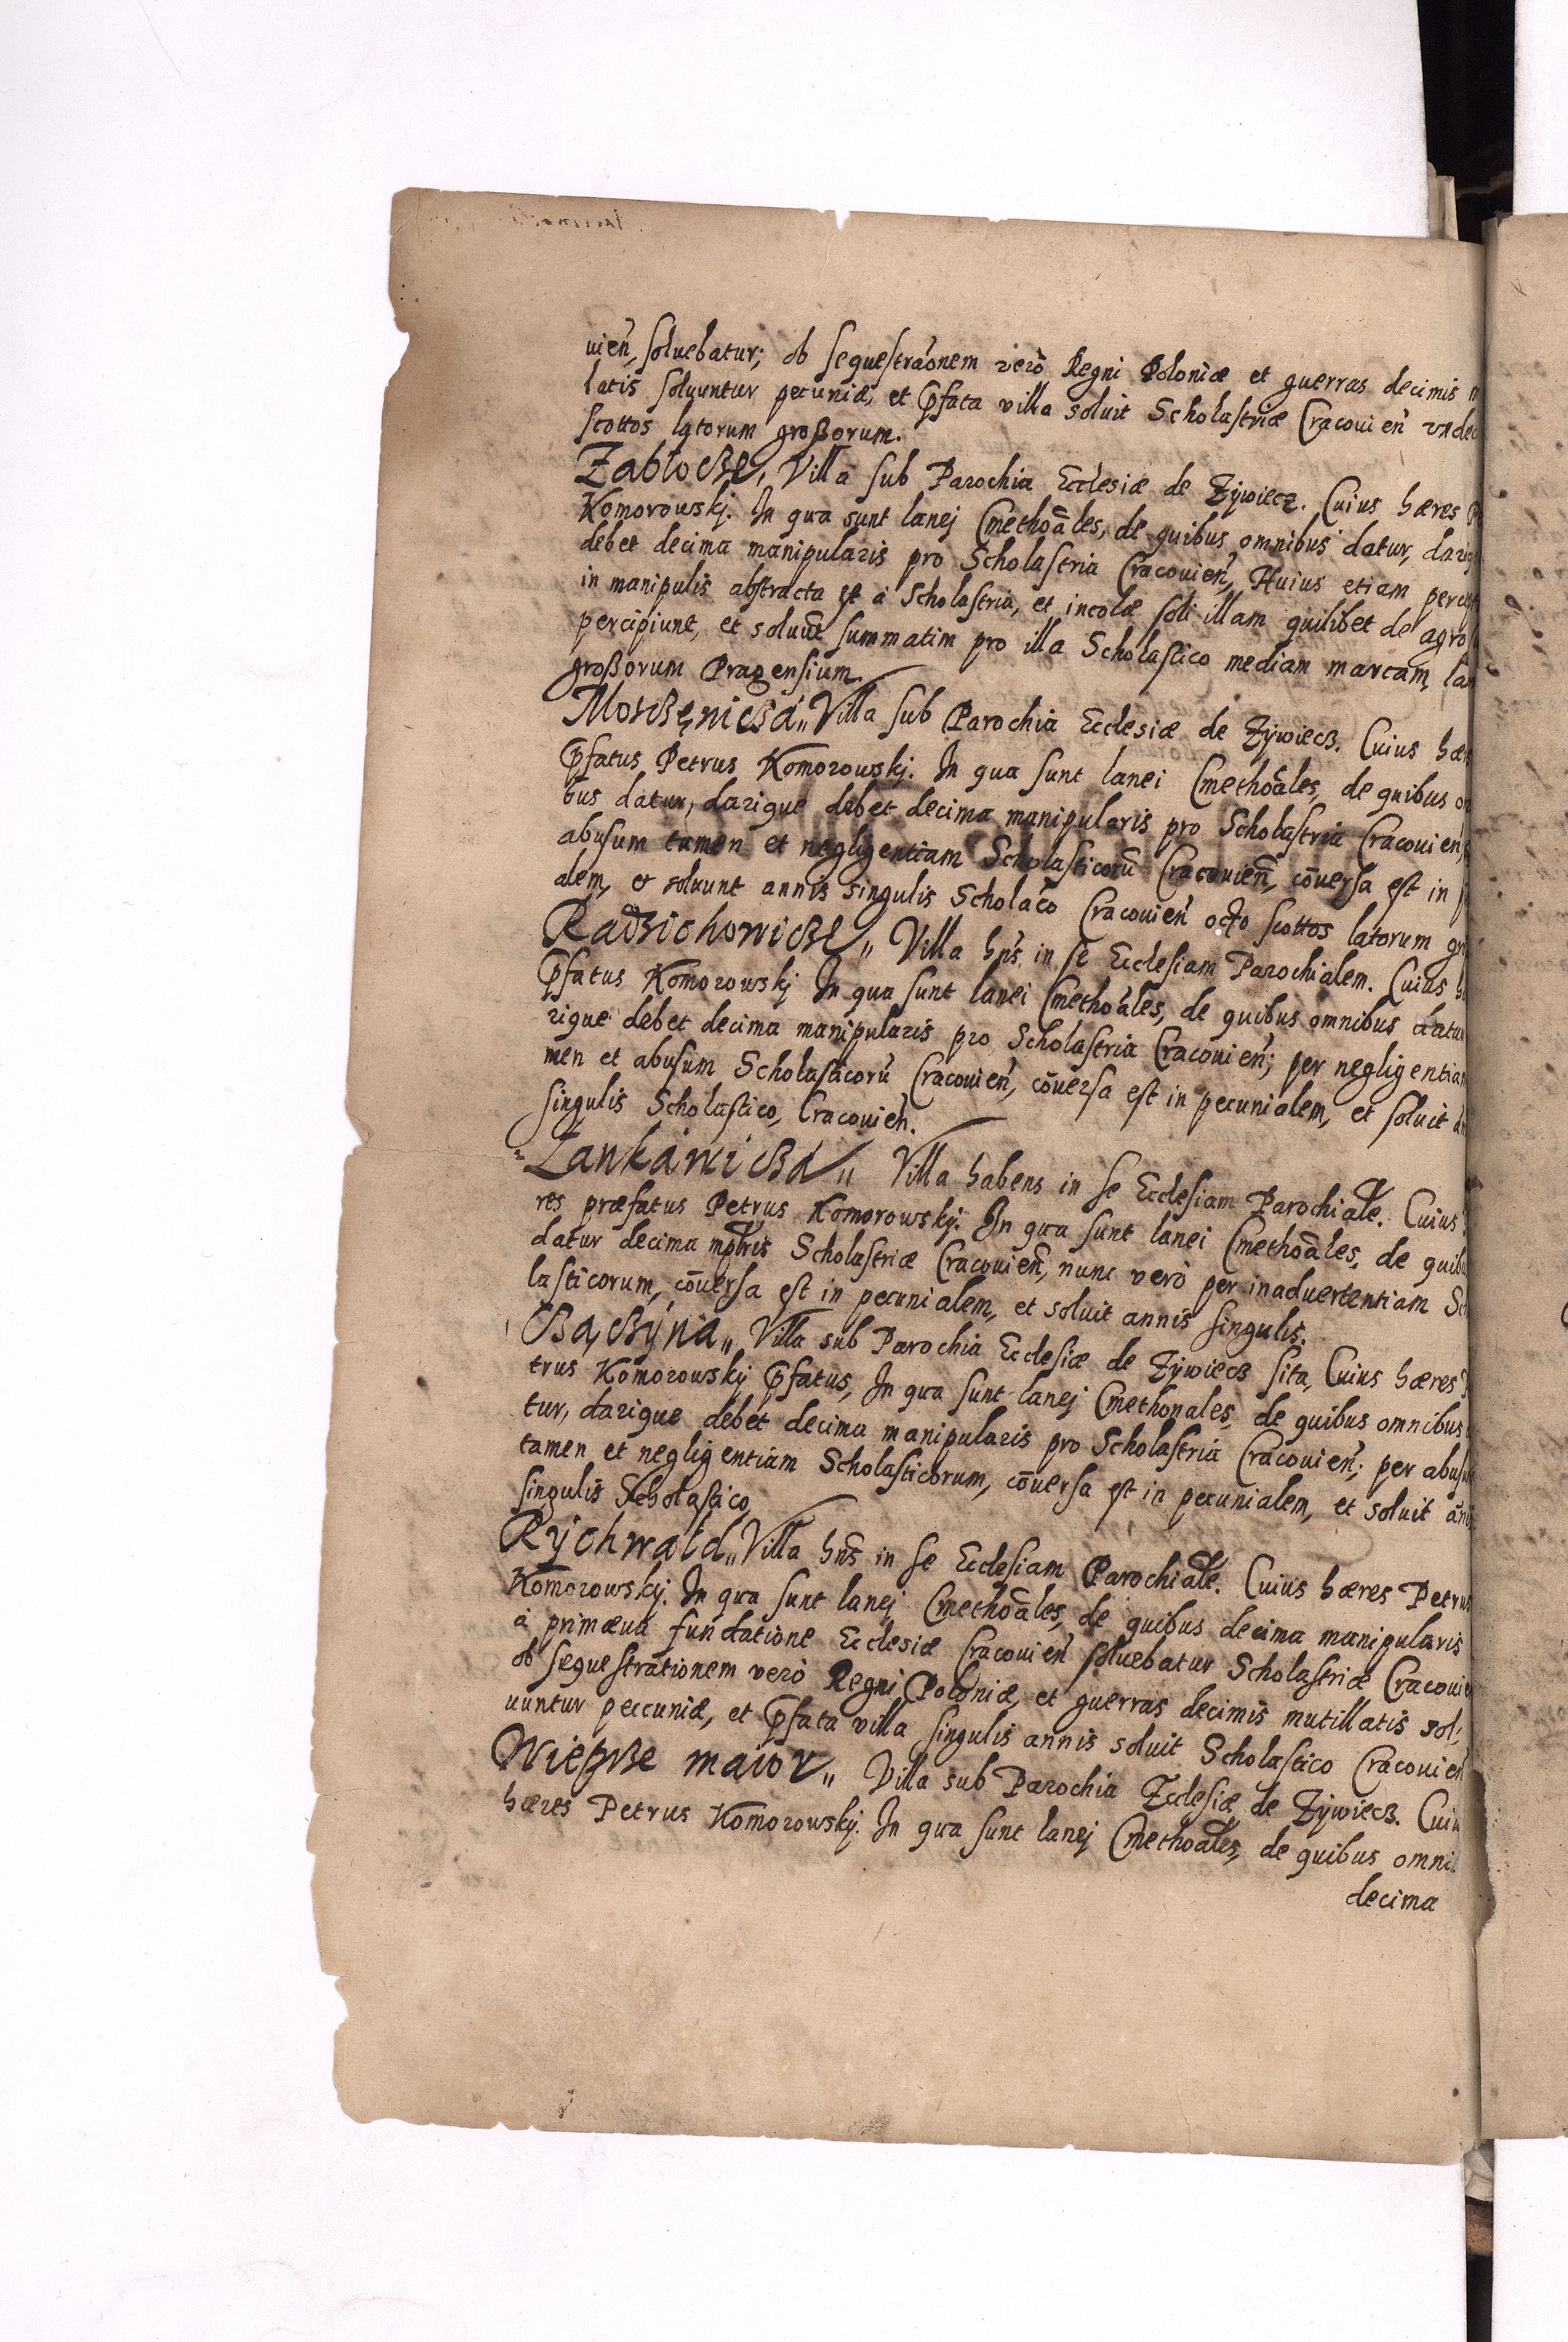 uień, soluebatur; ob sequestraōnem verò Regni Poloniæ et guerras decimis
latis soluuntur pecuniæ, et p̄fata villa soluit Scholastriæ Cracouień
scottos latorum großorum.
Zabłocże, Villa sub Parochia Ecclesiæ de Zÿwiecz. Cuius hæres
Komorowskj. In qua sunt lanej Cmethōales, de quibus omnibus datur,
debet decima manipularis pro Scholastria Cracouień, Huius etiam
in manipulis abstracta est à Scholastria, et incolæ soli illam quilibet de agro
percipiunt, et soluūt summatim pro illa Scholastico mediam marcam,
großorum Pragensium.
Moszcżęnicżá,, Villa sub Parochia Ecclesiæ de Zÿwiecz. Cuius
p̄fatus Petrus Komorowskj. In qua sunt lanei Cmethōales, de quibus
bus datur, darique debet decima manipularis pro Scholastria Cracouień,
abusum tamen et negligentiam Scholasticorū Cracouień, cōuersa est in
alem, et soluunt annis singulis Scholāco Cracouień octo scottos latorum
Radzichowicże,, Villa hn̄s in se Ecclesiam Parochialem. Cuius
p̄fatus Komorowskj In qua sunt lanei Cmethōales, de quibus omnibus datur
rique debet decima manipularis pro Scholastria Cracouień; per negligentiam
men et abusum Scholasticorū Cracouień, cōuersa est in pecunialem, et soluit
singulis Scholastico, Cracouień.
Lankáwicżá,, Villa habens in se Ecclesiam Parochialē. Cuius
res præfatus Petrus Komorowskj. In qua sunt lanei Cmethōales, de
datur decima mplris Scholastriæ Cracouień, nunc verò per inaduertentiam
lasticorum, cōuersa est in pecunialem, et soluit annis singulis.
Cżączÿná,, Villa sub Parochia Ecclesiæ de Zÿwiecz sita, Cuius hæres
trus Komorowskÿ p̄fatus, In qua sunt lanej Cmethonales, de quibus omnibus
tur, darique debet decima manipularis pro Scholastria Cracouień; per
tamen et negligentiam Scholasticorum, cōuersa est in pecunialem, et soluit
singulis Scholastico,
Rÿchwałd,, Villa hn̄s in se Ecclesiam Parochialē. Cuius hæres Petrus
Komorowskÿ. In qua sunt lanej Cmethōales, de quibus decima manipularis
à primæua fundatione Ecclesiæ Cracouień soluebatur Scholastriæ
ob sequestrationem verò Regni Poloniæ, et guerras decimis mutillatis sol:
uuntur peccuniæ, et p̄fata villa singulis annis soluit Scholastico Cracouień
Wieprże maior,, Villa sub Parochia Ecclesiæ de Zÿwiecz.
hæres Petrus Komorowskÿ. In qua sunt lanej Cmethōales, de quibus
decima